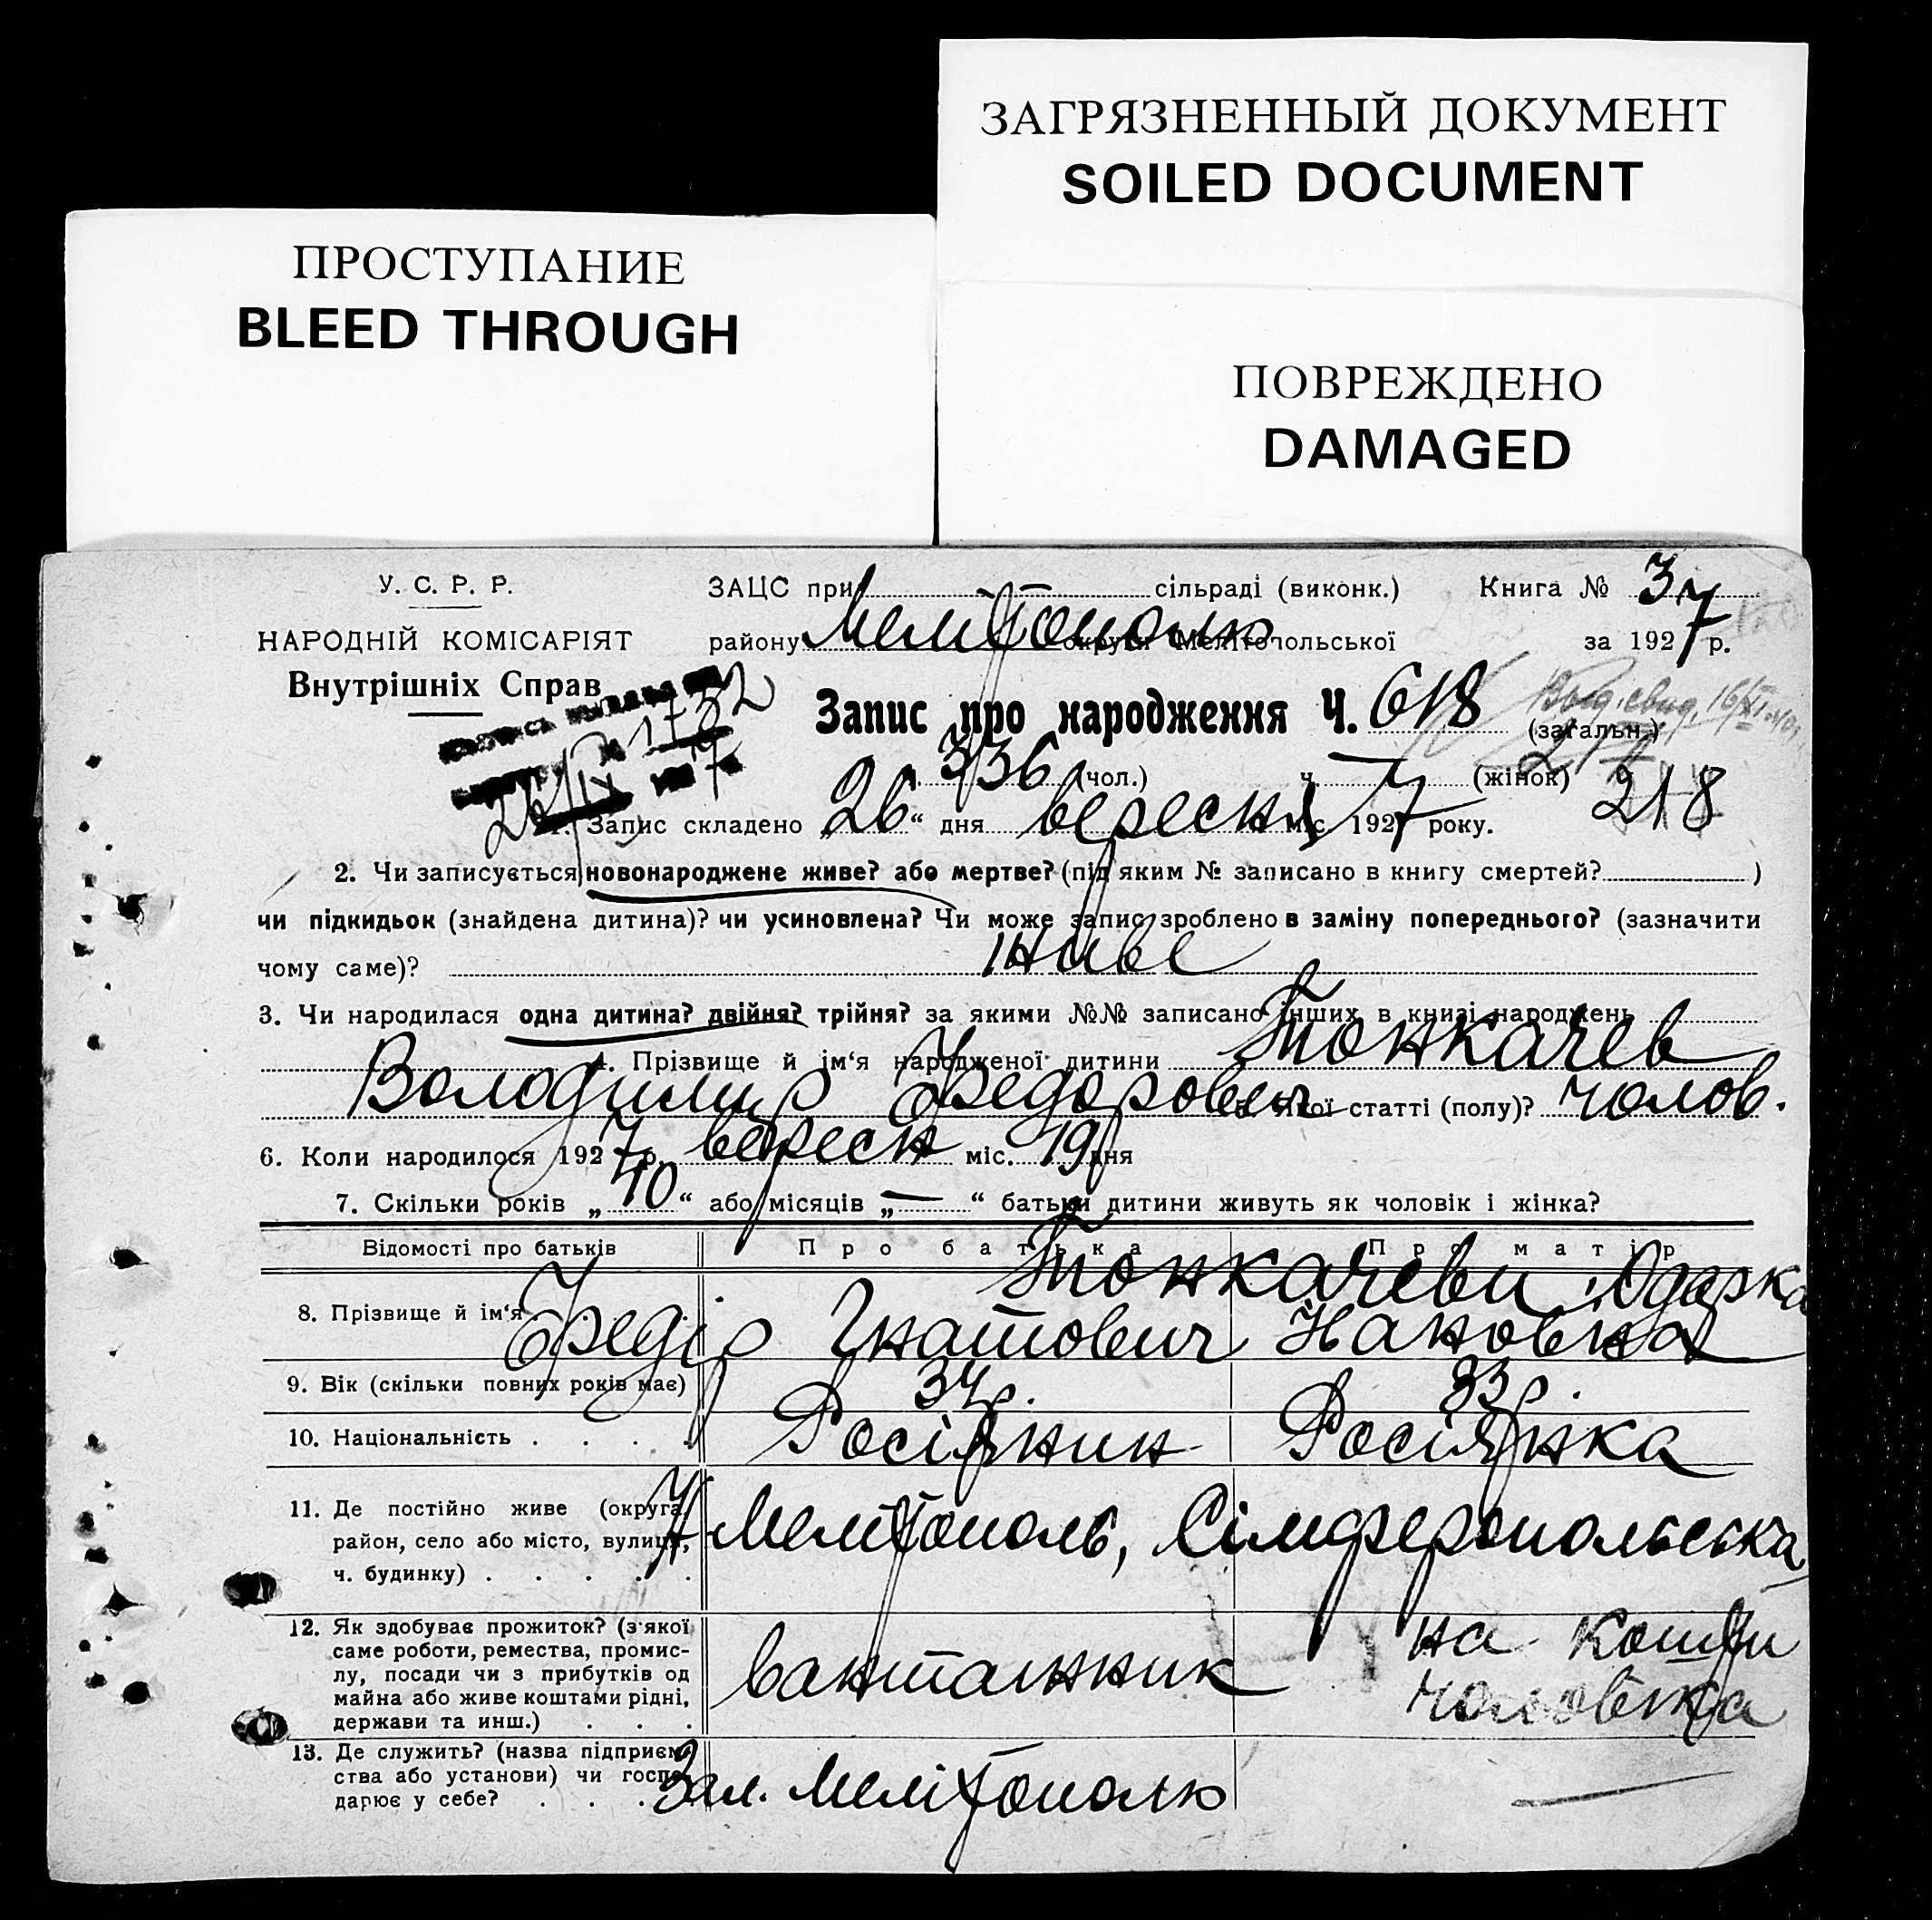 ЗАГРЯЗНЕННЫЙ ДОКУМЕНТ
SOILED DOCUMENT
ПРОСТУПАНИЕ
BLEED THROUGH
ПОВРЕЖДЕНО
DAMAGED
У. С. Р. Р.
НАРОДНІЙ КОМІСАРІЯТ
Внутрішніх Справ
ЗАЦС при сільраді (виконк.) Книга № 3
району Мелітополю округи Мелітопольської за 1927 р.
1732
26/IX 7
Запис про народження Ч. 618 (загальн.)
336 (чол.) ч. (жінок)
218
1. Запис складено „26“ дня вересня міс. 1927 року.
2. Чи записується новонароджене живе? або мертве? (під яким № записано в книгу смертей? )
чи підкидьок (знайдена дитина)? чи усиновлена? Чи може запис зроблено в заміну попереднього? (зазначити
чому саме)? живе
3. Чи народилася одна дитина? двійня? трійня? за якими №№ записано інших в книзі народжень
4. Прізвище й ім‘я народженої дитини Тонкачев
Володимир Федорович 5. Якої статті (полу)? чолов.
6. Коли народилося 1927 р. вересн міс. 19 дня
7. Скільки років „10“ або місяців „—“ батьки дитини живуть як чоловік і жінка?
Відомості про батьків Про батька Про матір
8. Прізвище й ім‘я Тонкачеви Одарка
Федір Гнатович Нановна
9. Вік (скільки повних років має) 34р. 33р.
10. Національність . . . . Росіянин Росіянка
11. Де постійно живе (округа,
район, село або місто, вулиця,
ч. будинку) . . . . .
Мелітополь, Сімферопольська
12. Як здобуває прожиток? (з якої
саме роботи, ремества, промис-
лу, посади чи з прибутків од
майна або живе коштами рідні,
держави та инш.) . . .
вантажник
на кошти
чоловіка
13. Де служить? (назва підприєм-
ства або установи) чи госпо-
дарює у себе? . . . .
Зал. Мелітополю